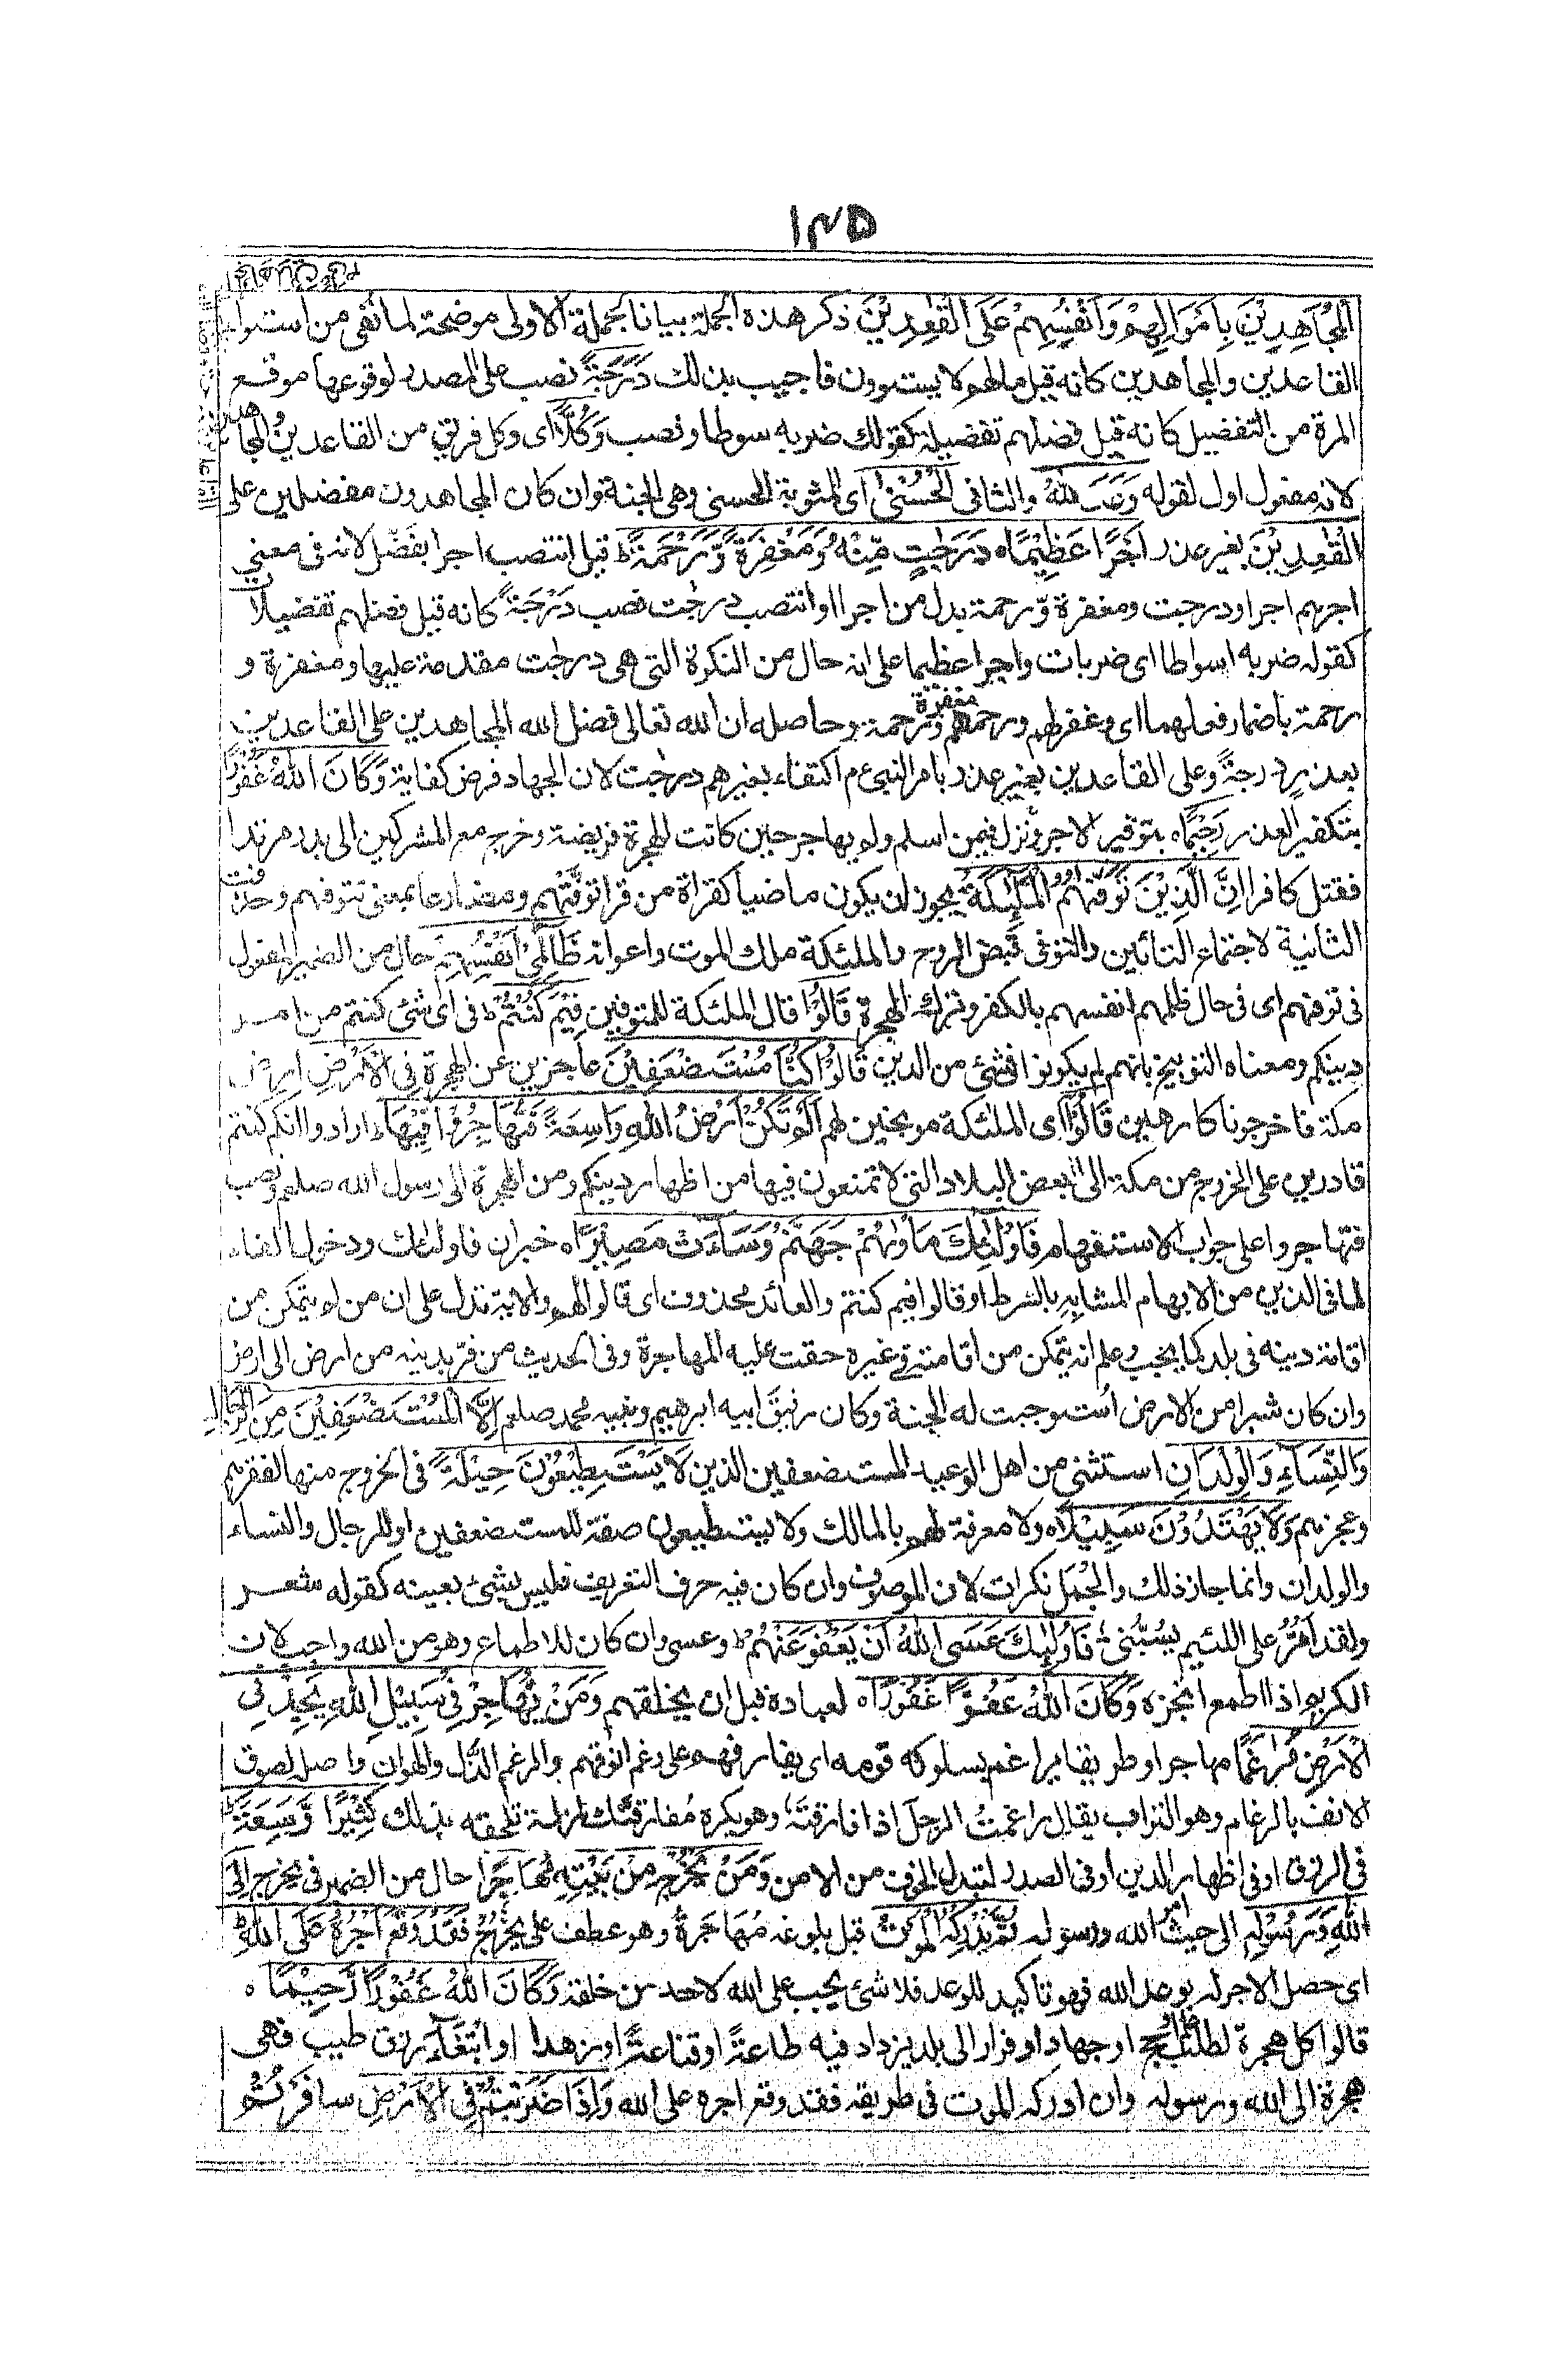 ١٣٥
الْمُجَاهِدِيْنَ بِاَمْوَالِهِمْ وَاَنْفُسِهِمْ عَلَى الْقٰعِدِيْنَ ذكر هذه الجملة بيانا لجملة الاولى موضحة لما نفى من استواء
القاعدين والمجاهدين كانه قيل ما لهم لا يستوون فاجيب بذلك دَرَجَةً نصب على المصدر لوقوعها موقع
المرة من التفضيل كانه قيل فضلهم تفضيلة كقولك ضربه سوطا ونصب وَكُلًّا اى وكل فريق من القاعدين والمجاهدين
لانه مفعول اول لقوله وَعَدَ اللهُ والثانى الْحُسْنٰى اى المثوبة الحسنى وهى الجنة وان كان المجاهدون مفضلين على
الْقٰعِدِيْنَ بغير عذر اَجْرًا عَظِيْمًا ه دَرَجٰتٍ مِّنْهُ وَمَغْفِرَةً وَّرَحْمَةً ط قيل انتصب اجرا بفَضَّل لانه فى معنى
اجرهم اجرا ودرجت ومغفرة وّرحمة بدل من اجرا او انتصب درجٰت نصب دَرَجَةً كانه قيل فضلهم تفضيلات
كقوله ضربه اسواطا اى ضربات واجرا عظيما على انه حال من النكرة التى هى درجٰت مقدمة عليها ومغفرة و
رحمة باضمار فعلهما اى وغفرلهم ورحمهم مغفرة ورحمة وحاصله ان الله تعالى فضل الله المجاهدين على القاعدين
بعذرٍ درجةً وعلى القاعدين بغير عذر بامر النبى ع م اكتفاء بغيرهم درجٰت لان الجهاد فرض كفاية وَكَانَ اللهُ غَفُوْرًا
بتكفير العذر رَحِيْمًا ه بتوفير الاجر ونزل فيمن اسلم ولم يهاجر حين كانت الهجرة فريضة وخرج مع المشركين الى بدر مرتدا
فقتل كافرا اِنَّ الَّذِيْنَ تَوَفّٰهُمُ الْمَلٰٓئِكَةُ يجوز ان يكون ماضيا كقراة من قرا توفّتهم ومضارعا بمعنى تتوفهم وحذفت
الثانية لاجتماع التائين والتوفى قبض الروح والملئكة ملك الموت واعوانه ظَالِمِىْٓ اَنْفُسِهِمْ حال من الضمير المفعول
فى توفهم اى فى حال ظلمهم انفسهم بالكفر وترك الهجرة قَالُوْا قال الملئكة للمتوفين فِيْمَ كُنْتُمْ ط فى اى شئ كنتم من امر
دينكم ومعناه التوبيخ بانهم لم يكونوا فى شئ من الدين قَالُوْا كُنَّا مُسْتَضْعَفِيْنَ عاجزين عن الهجرة فِى الْاَرْضِ ارض
مكة فاخرجونا كارهين قَالُوْٓا اى الملئكة موبخين لهم اَلَمْ تَكُنْ اَرْضُ اللهِ وَاسِعَةً فَتُهَاجِرُوْا فِيْهَا ط ارادوا انكم كنتم
قادرين على الخروج من مكة الى بعض البلاد التى لا تمنعون فيها من اظهار دينكم ومن الهجرة الى رسول الله صلعم ونصب
فتهاجروا على جواب الاستفهام فَاُولٰٓئِكَ مَاْوٰىهُمْ جَهَنَّمُ وَسَآءَتْ مَصِيْرًا ه خبر ان فاولئك ودخول الفاء
لما فى الذين من الابهام المشابه بالشرط او قالوا فيم كنتم والعائد محذوف اى قالوا لهم والاية تدل على ان من لم يتمكن من
اقامة دينه فى بلد كما يجب وعلم انه يتمكن من اقامته فى غيره حقت عليه المهاجرة وفى الحديث من فرّ بدينه من ارض الى ارض
وان كان شبرا من الارض استوجبت له الجنة وكان رفيق ابيه ابرهيم ونبيه محمد صلعم اِلَّا الْمُسْتَضْعَفِيْنَ مِنَ الرِّجَالِ
وَالنِّسَآءِ وَالْوِلْدَانِ استثنى من اهل الوعيد المستضعفين الذين لَا يَسْتَطِيْعُوْنَ حِيْلَةً فى الخروج منها لفقرهم
وعجزهم وَلَا يَهْتَدُوْنَ سَبِيْلًا ه ولا معرفة لهم بالمسالك ولا يستطيعون صفة للمستضعفين او للرجال والنساء
والولدان وانما جاز ذلك والجُمَل نكرات لان الموصوف وان كان فيه حرف التعريف فليس بشئ بعينه كقوله شعر
ولقد اَمُرُّ على اللئيم يسُبّنى ؛ فَاُولٰٓئِكَ عَسَى اللهُ اَنْ يَعْفُوَ عَنْهُمْ ط وعسى وان كان للاطماع وهو من الله واجب لان
الكريم اذا اطمع انجزه وَكَانَ اللهُ عَفُوًّا غَفُوْرًا ه لعباده قبل ان يخلقهم وَمَنْ يُّهَاجِرْ فِىْ سَبِيْلِ اللهِ يَجِدْ فِى
الْاَرْضِ مُرٰغَمًا مهاجرا وطريقا يراغم بسلوكه قومه اى يفارقهم على رغم انوفهم والرغم الذّل والهوان واصله لصوق
الانف بالرغام وهو التراب يقال راغمتُ الرجل اذا فارقتَهٗ وهو يكره مُفارقتك لمذلة تلحقه بذلك كَثِيْرًا وَّسَعَةً ط
فى الرزق او فى اظهار الدين او فى الصدر لتبدل الخوف من الامن وَمَنْ يَّخْرُجْ مِنْ بَيْتِهٖ مُهَاجِرًا حال من الضمير فى يخرج اِلَى
اللهِ وَرَسُوْلِهٖ الى حيث امر الله ورسوله ثُمَّ يُدْرِكْهُ الْمَوْتُ قبل بلوغه مُهَاجَرَهٗ وهو عطف على يَخْرُجْ فَقَدْ وَقَعَ اَجْرُهٗ عَلَى اللهِ ط
اى حصل الاجر له بوعد الله فهو تاكيد للوعد فلا شئ يجب على الله لاحد من خلقه وَكَانَ اللهُ غَفُوْرًا رَّحِيْمًا ه
قالوا كل هجرة لطلب علم او حج او جهاد او فرار الى بلد يزداد فيه طاعةً او قناعةً او زهدا او ابتغآءَ رزق طيب فهى
هجرة الى الله ورسوله وان ادركه الموت فى طريقه فقد وقع اجره على الله وَاِذَا ضَرَبْتُمْ فِى الْاَرْضِ سافرتم